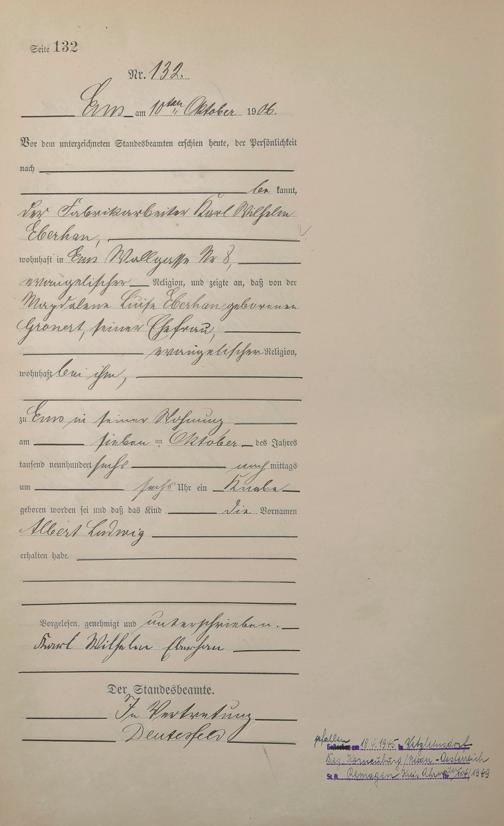 Seite 132
Nr. 132.
Ems am 10ten Oktober 1906.
Vor dem unterzeichneten Standesbeamten erschien heute, der Persönlichkeit
nach
be kannt,
der Fabrikarbeiter Karl Wilhelm
Eberhan,
wohnhaft in Ems Wallgasse Nr 8,
evangelischer Religion, und zeigte an, daß von der
Magdalene Luise Eberhan geborenen
Gronert, seiner Ehefrau,
evangelischer Religion,
wohnhaft bei ihm,
zu Ems in seiner Wohnung
am sieben ten Oktober des Jahres
tausend neunhundert sechs nach mittags
um sechs Uhr ein Knabe
geboren worden sei und daß das Kind die Vornamen
Albert Ludwig
erhalten habe.
Vorgelesen, genehmigt und unterschrieben.
Karl Wilhelm Eberhan
Der Standesbeamte.
In Vertretung
gefallen am 1945 in
Korneuburg
St.A. Remagen 1949